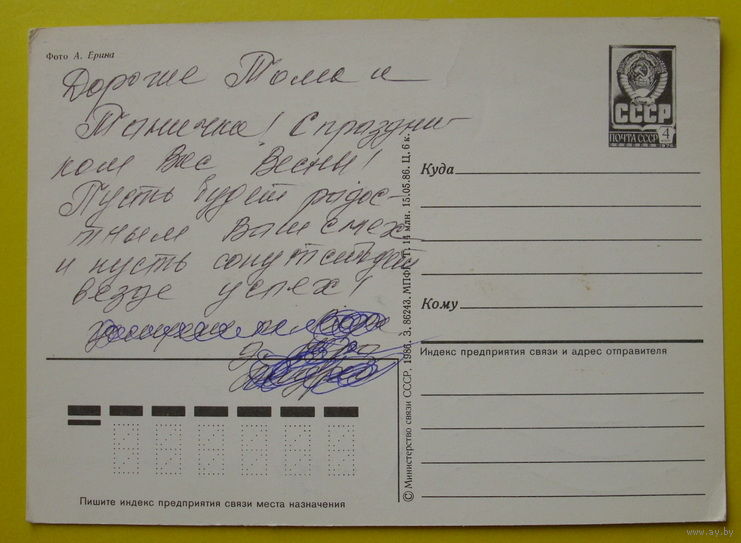 Фото А. Ерина
Дорогие Тома и
Таничка! С праздни-
ком Вас Весны!
Пусть будет радос-
тным Ваш смех
и пусть сопутствует
везде успех!
СССР
ПОЧТА СССР 4
Куда
Кому
Индекс предприятия связи и адрес отправителя
© Министерство связи СССР, 1986. З. 86243. МПФГ. Т. 14 млн. 15.05.86. Ц. 6 к.
Пишите индекс предприятия связи места назначения
www.ay.by